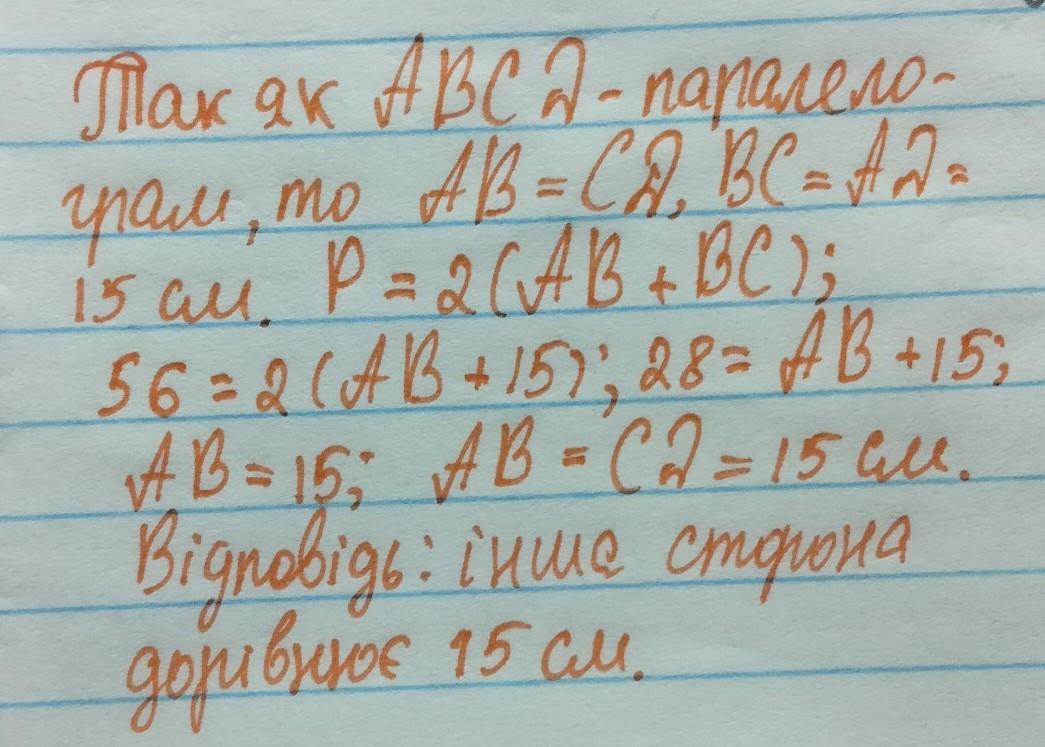 Так як ABCD - паралело-
грам, то AB = CD, BC = AD =
15 см. P = 2(AB + BC);
56 = 2(AB + 15); 28 = AB + 15;
AB = 15; AB = CD = 15 см.
Відповідь: інша сторона
дорівнює 15 см.